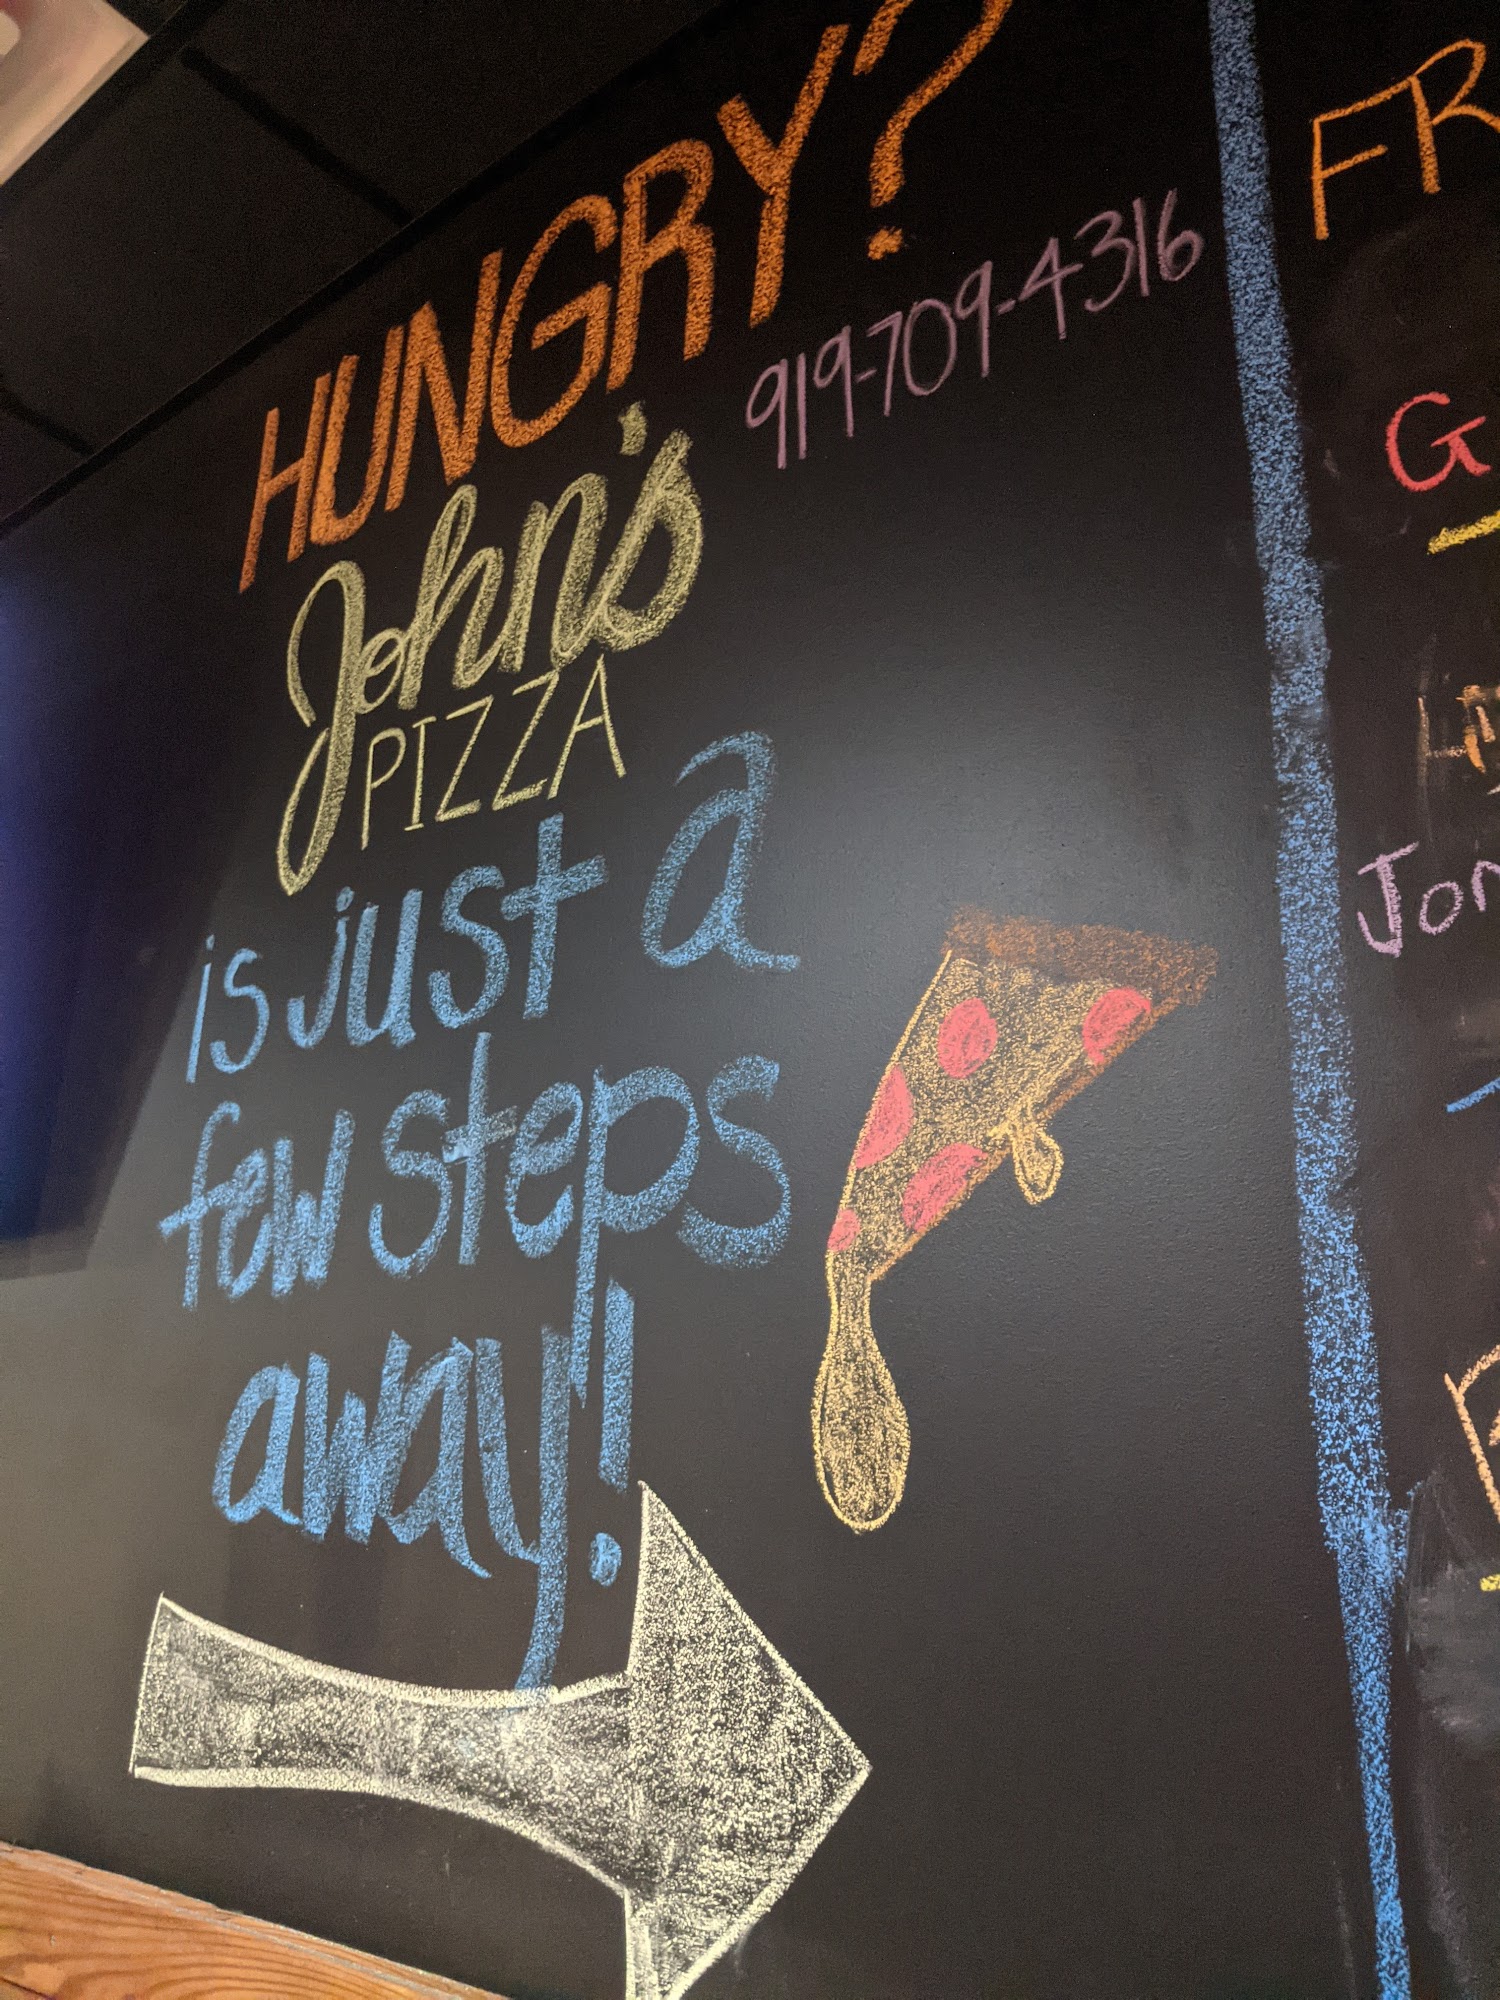 HUNGRY?
919-709-4316
John's
PIZZA
is just a
few steps
away!
FR
G
Jon